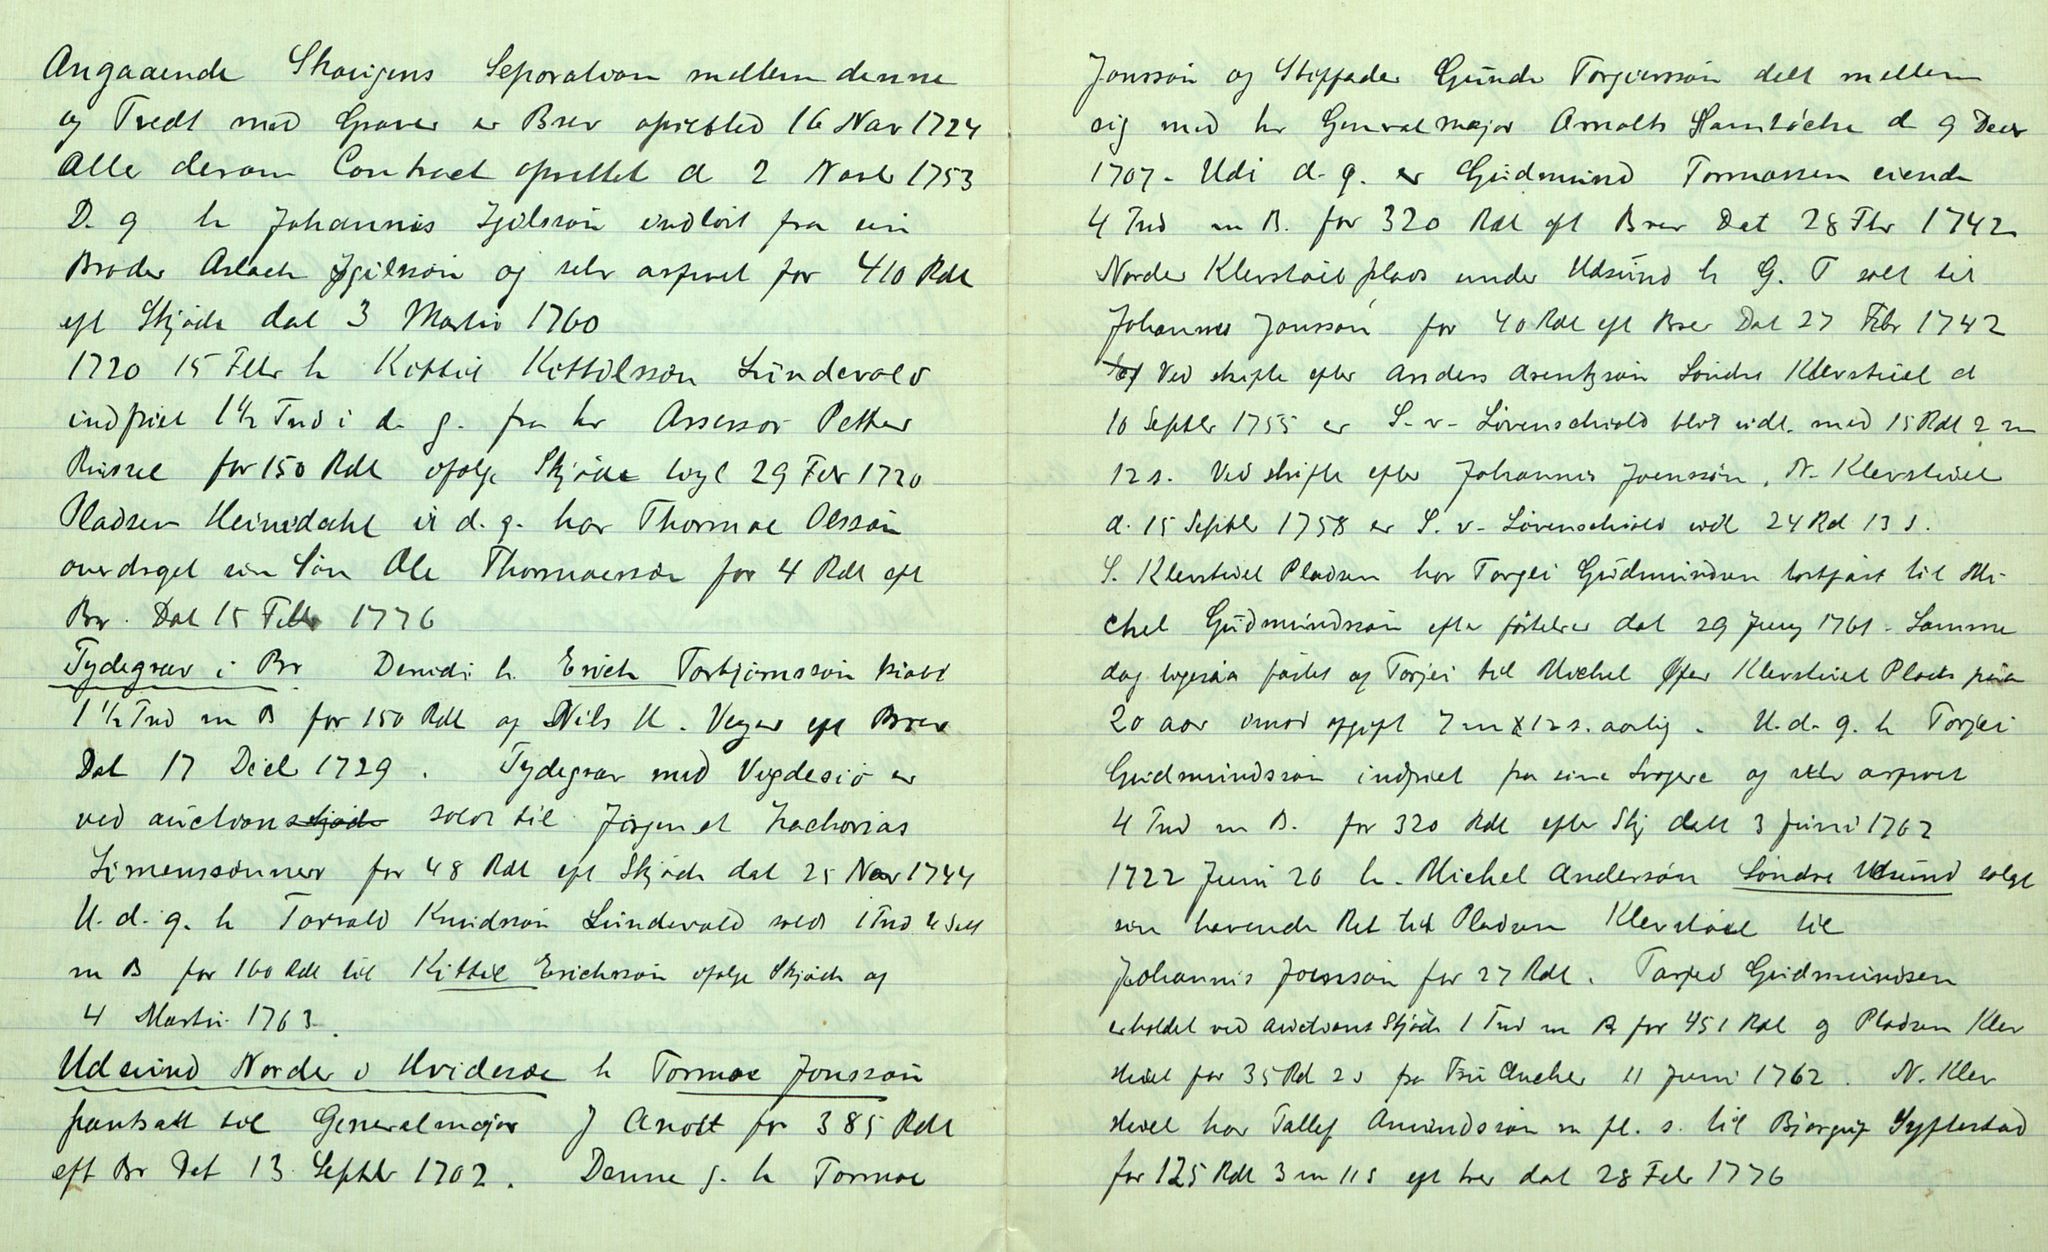 Angaaende Skougens Separation mellem denne
og Tvedt med Graver er Brev opretted 16 Nov 1724
Atter derom Contract oprettet d 2 Novbr 1753
D. g h Johannis Igilssøn indløst fra sin
Broder Aslach Igilssøn og selv arfvet for 410 Rdl
eft Skjøde dat 3 Martii 1760
1720 15 Febr h Kittil Kittilssøn Lundevald
indfriet 1 1/2 Tnd i d. g. fra hr Assessor Petter
for 150 Rdl ifølge Skjøde 29 Febr 1720
Pladsen Heimdahl i d. g. har Thormoe Olssøn
overdraget sin Søn Ole Thormoessøn for 4 Rdl eft
Br. Dat 15 Febr 1776
Tydegrav i Br Derudi h. Erich Torbjørnssøn kiøbt
1 1/2 Tnd m B for 150 Rdl af Nils H. Veyer eft Brev
Dat 17 Decb 1729. Tydegrav med Vegdesiø er
ved auctionsskjøde solgt til Jørgen et Zachorias
Simenssønner for 48 Rdl eft Skjøde dat 25 Nov 1744
U. d. g. h Torvald Knudssøn Lundevald solgt 1 Tnd
m B for 160 Rdl til Kittil Erichssøn ifølge Skjøde af
4 Martii 1763.
Udsund Nordre i Hvidesøe h Tormoe Jonssøn
pantsatt til Generalmajor J Arnolt for 385 Rdl
eft Br Dat 13 Septbr 1702. Denne g. h Tormoe
Jonssøn og Stiffader Gunde Torgiussøn delt mellem
sig med hr Generalmajor Arnolts d 9 Decr
1707. Udi d. g. er Gudmund Tormossen eiende
4 Tnd m B. for 320 Rdl eft Brev Dat 28 Fbr 1742
Nordre Klevstøilplads under Udsund h G. T solt til
Johannes Jonssøn for 40 Rdl eft Brev Dat 27 Febr 1742
Ved skifte efter Anders Arentzøn Søndre Klevstøiel d
10 Septbr 1755 er S. v. Løvenschiold blot udl. med 15 Rdl 2 m
12 s. Ved skifte efter Johannis Joenssøn, N. Klevstøiel
d. 15 Septbr 1758 er S. v. Løvenschiold udl 24 Rd 13 s.
S. Klevstøiel Pladsen har Torgei Gudmundsen bortfæst til Mi-
chel Gudmundssøn efter føstebrev dat 29 Juny 1761. Samme
dag ligesaa føstet af Torjei til Michel Øfre Klevstøiel Plads paa
20 aar imod afgift 7 m 12 s. aarlig. U. d. g. h Torjei
Gudmundssøn indfriet fra sine Svogere og selv arfvet
4 Tnd m B. for 320 Rdl efter Skj datt 3 Juni 1762
1722 Juni 26 h. Michel Anderssøn Søndre Udsund solgt
sin havende Ret til Pladsen Klevstøiel til
Johannis Joenssøn for 27 Rdl. Torjei Gudmundsen
erholdet ved Auctions Skjøde 1 Tnd m B for 451 Rdl og Pladsen Klev
støiel for 35 Rd 2 s fra Fru Ancher 11 Juni 1762. N. Klev
støiel har Tallef Amundssøn m fl. s. til Bjørgulf Syftestad
for 125 Rdl 3 m 11 s eft brev dat 28 Febr 1776